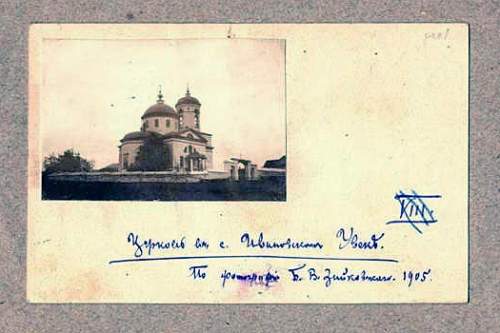 VIII
Церковь въ с. Ивановскомъ Увекъ.
По фотографіи Б. В. Зайковскаго. 1905.